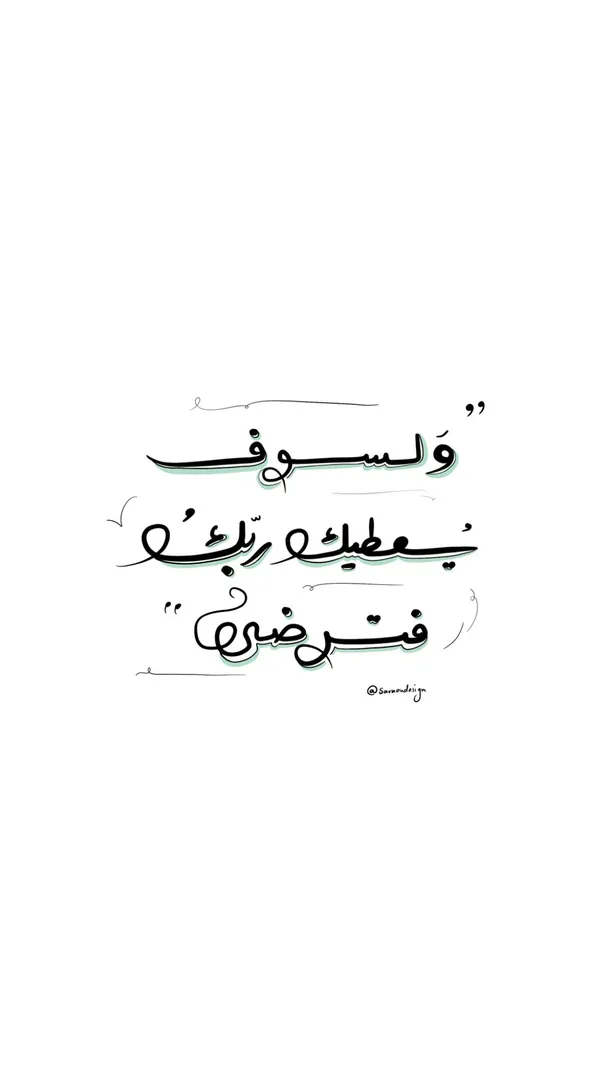 ”وَلسوف
يُسعطيك ربّكُ
فترضى“
@saraoudesign